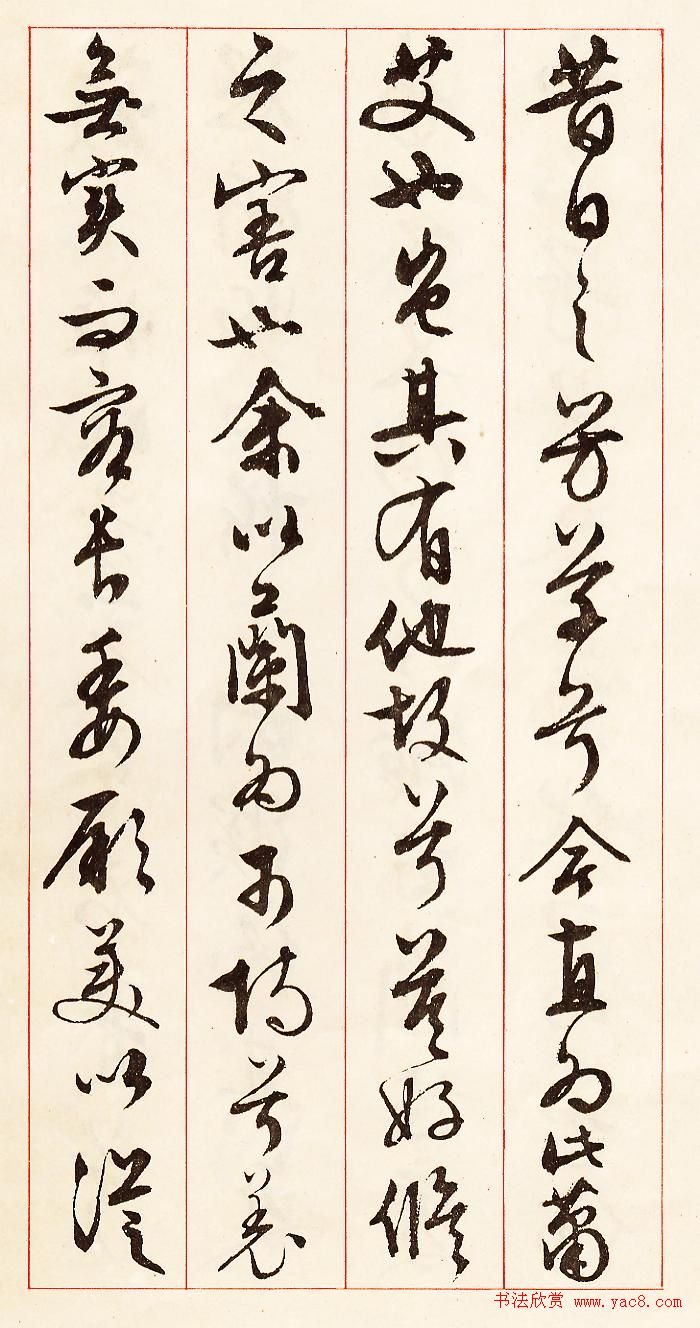 昔日之芳草兮今直為此蕭
艾也豈其有他故兮莫好脩
之害也余以蘭為可恃兮羌
無實而容長委厥美以從
书法欣赏 www.yac8.com